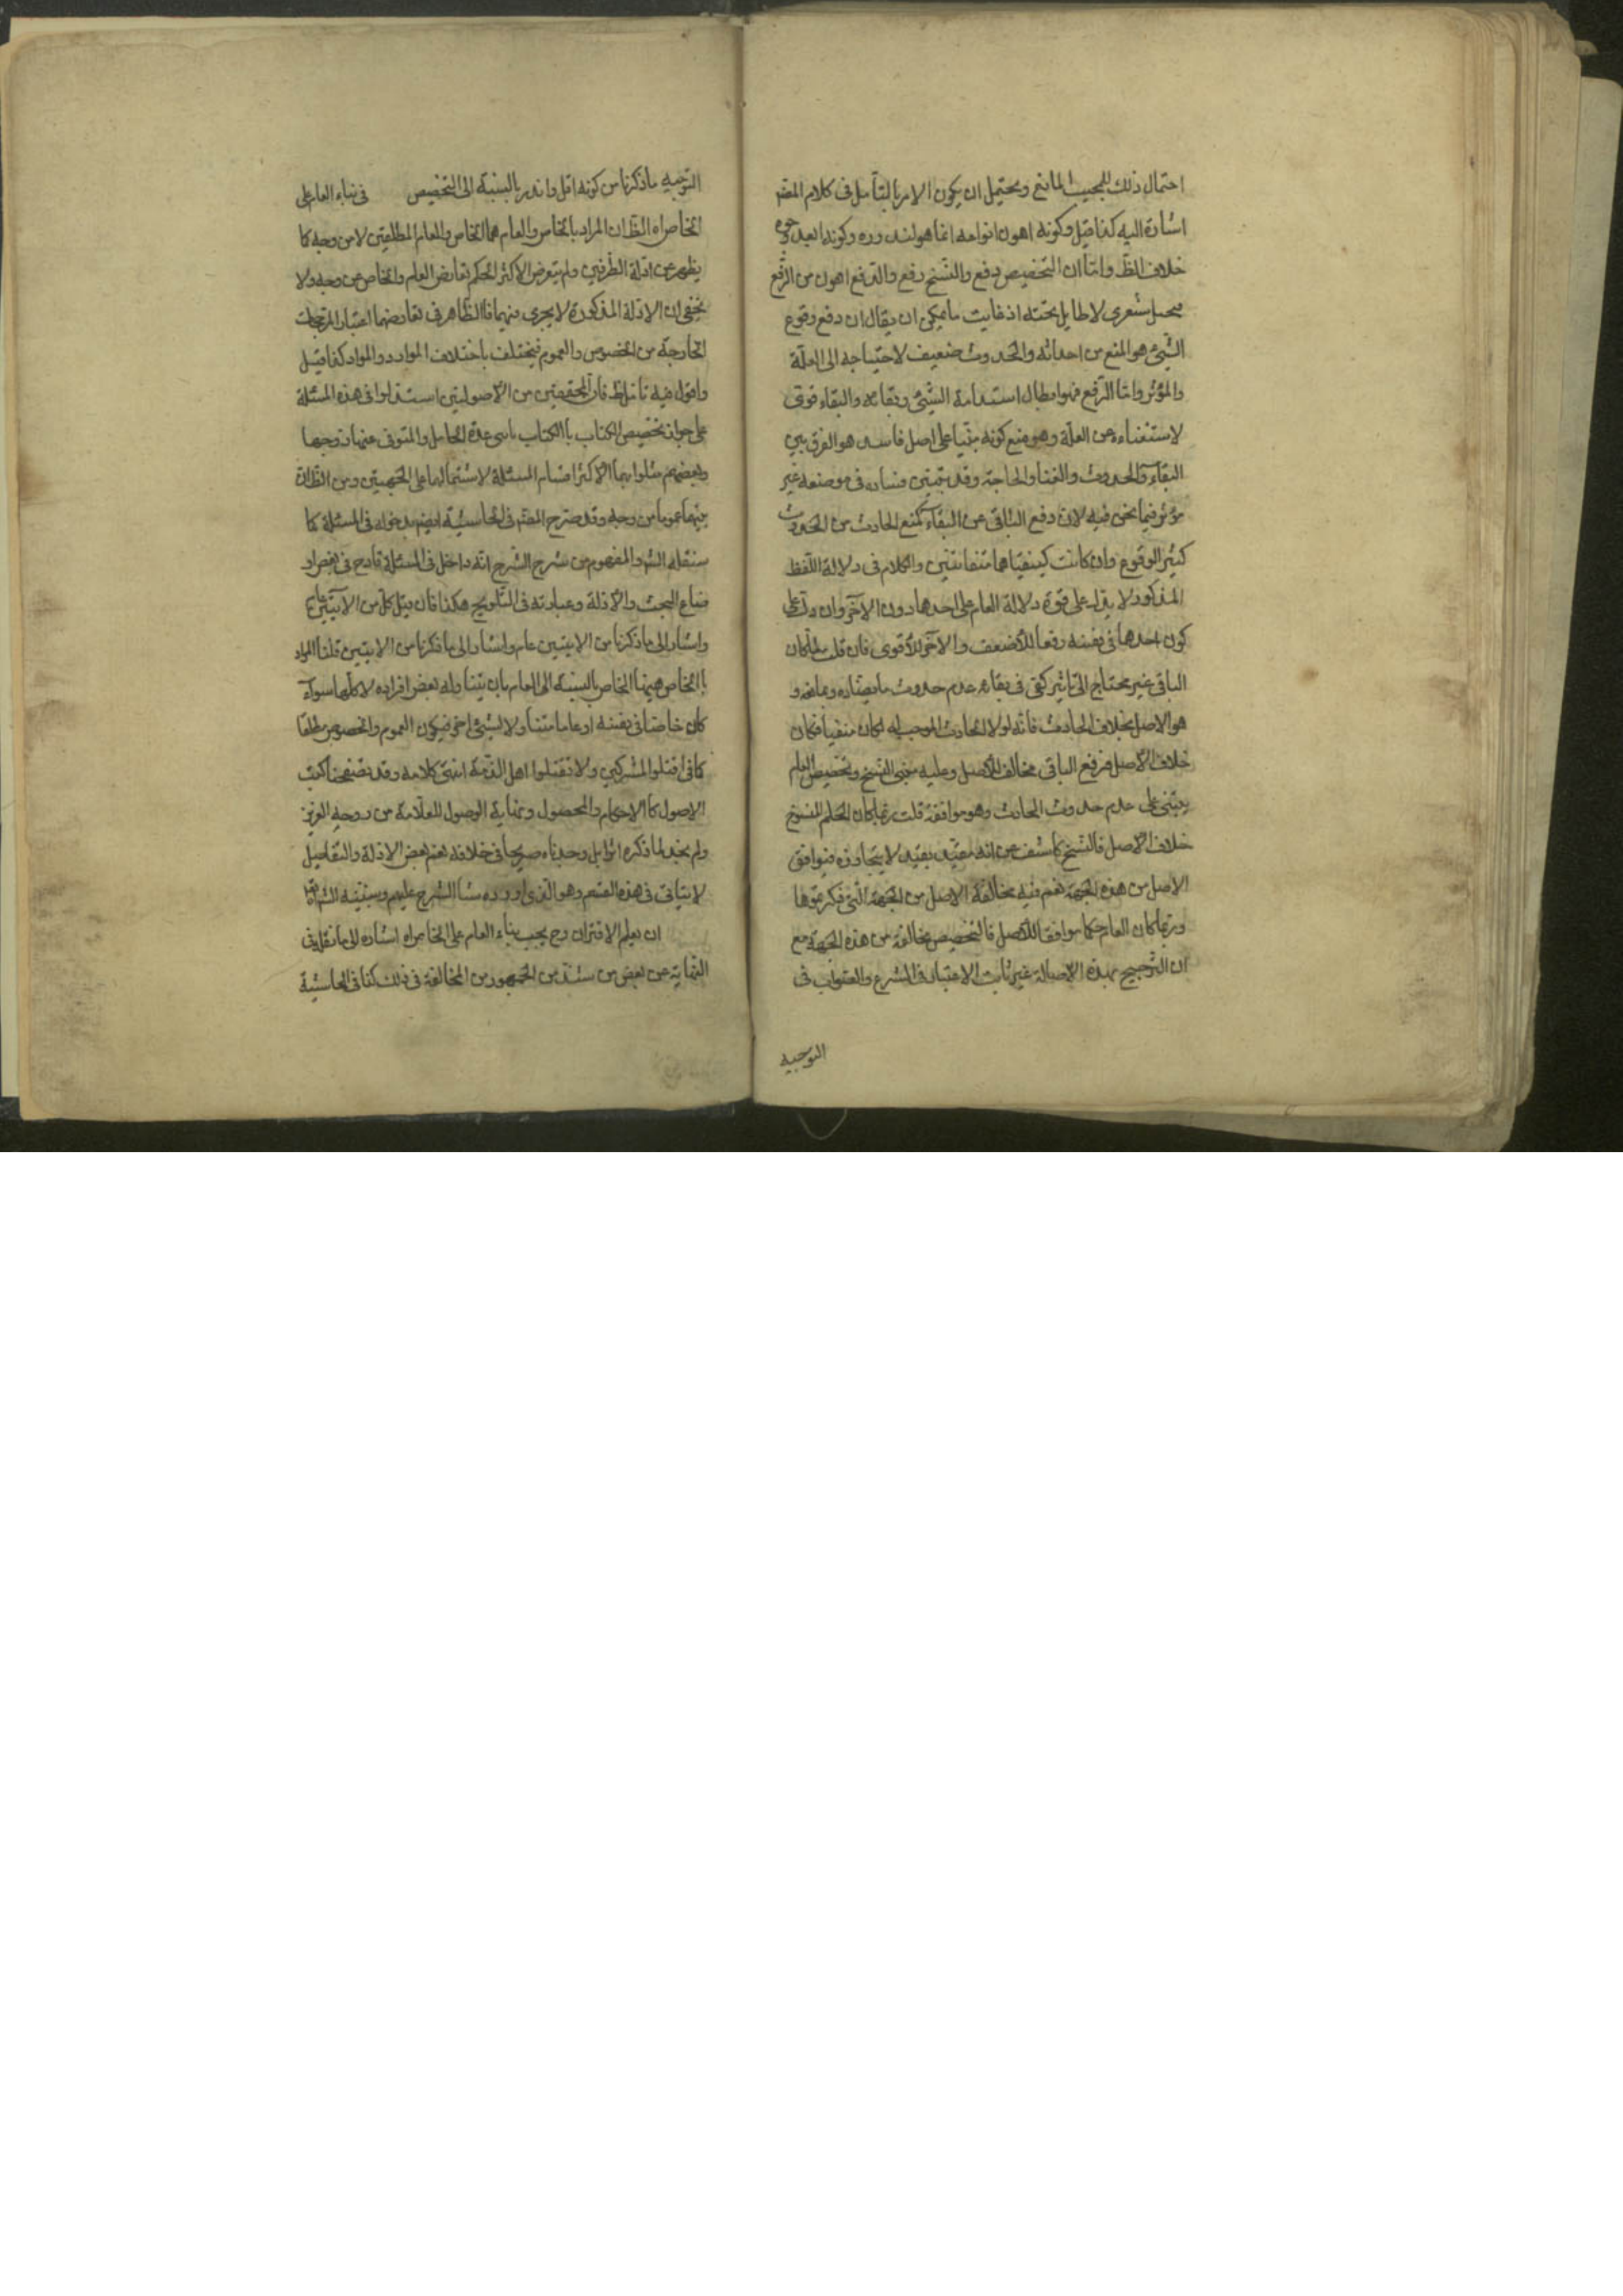 احتمال ذلك للمجيب المانع ويحتمل ان يكون الامر بالتأمل في كلام المصّ
اشارة اليه كذا قيل وكونه اهون انواعه انما هو لندوره وكونه ابعد وجوه
خلاف الظّ وامّا ان التخصيص دفع والنسخ رفع والدفع اهون من الرفع
شعرى لا طايل تحته اذ غايت ما يمكن ان يقال ان دفع وقوع
الشّئ هو المنع من احداثه والحدوث ضعيف لاحتياجه الى العلّة
والمؤثر وامّا الرّفع فهو ابطال استدامة الشّئ وبقائه والبقاء قوى
لاستغناءه عن العلّة وهو مع كونه مبنيا على اصل فاسد هو الفرق بين
البقآء والحدوث والغنا والحاجة وقد تبيّن فساده في موضعه غير
مؤثر فيما نحن فيه لان دفع الباقى عن البقآء كمنع الحادث من الحدوث
كثير الوقوع وان كانت كيفيتاهما متفاتتين والكلام في دلالة اللّفظ
المذكور لا يدل على قوة دلالة العام على احدهما دون الآخر وان دلّ على
كون احدهما في نفسه رفعا للأضعف والآخر للأقوى فان قلت لمّا كان
الباقى غير محتاج الى تاثير كفى في بقائه عدم حدوث ما يضادّه ويمانعه و
هو الاصل بخلاف الحادث فانّه لولا الحادث الموجب له لكان منفيا فكان
خلاف الاصل فرفع الباقى مخالف للأصل وعليه مبنى النسخ وتخصيص العام
يبتنى على عدم حدوث الحادث وهو موافقة قلت ربّما كان الحكم المنسوخ
خلاف الأصل فالنسخ كاشف عن انه مقيّد بقيد لا يتجاوزه فيوافق
الاصل من هذه الجهة نعم فيه مخالفة الاصل من الجهة الّتى ذكرتموها
وربّما كان العام حكما موافقا للأصل فالتخصيص مخالفة من هذه الجهة مع
ان الترجيح بهذه الاصالة غير ثابت الاعتبار في الشرع والصّواب في
التوجيه
التّوجيه ما ذكرنا من كونه اقل واندر بالنسبة الى التخصيص في بناء العام على
الخاص اه الظّ ان المراد بالخاص والعام هما الخاص والعام المطلقين لا من وجه كما
يظهر من ادلة الطّرفين ولم يتعرض الأكثر لحكم تعارض العام والخاص من وجه ولا
يخفى ان الادلة المذكورة لا يجرى فيهما فالظّاهر في تعارضهما اعتبار المرجحات
الخارجة من الخصوص والعموم فيختلف باختلاف الموارد والمواد كذا قيل
واقول فيه تامّل ظّ فان المحققين من الأصوليين استدلوا في هذه المسئلة
على جواز تخصيص الكتاب بالكتاب باى عدة الحامل والمتوفى عنها زوجها
وبعضهم مثلوا بهما الأكثر اقسام المسئلة لاشتمالها على الجهتين ومن الظّ ان
بينهما عموما من وجه وقد صرّح المصّ في الحاشيّة ايضم بدخوله في المسئلة كما
سنقله الشّ والمفهوم من شرح الشّرح انّه داخل في المسئلة قادح في بعض او
ضاع البحث والأدلة وعبارته في التّلويح هكذا فان قيل كلّ من الآيتين عام
واشار الى ما ذكرنا من الايتين عام واشار الى ما ذكرنا من الايتين قلنا المراد
بالخاص هيهنا الخاص بالنسبة الى العام بان يتناوله بعض افراده لا كلّها سوآء
كان خاصّا في نفسه او عاما متناولا لشئ اخر فيكون العموم والخصوص مطلقا
كما في اقتلوا المشركين ولا تقتلوا اهل الذّمة انتهى كلامه وقد تصفحنا كتب
الاصول كالاحكام والمحصول ونهاية الوصول للعلّامة من روحه العزيز
ولم نجد لما ذكره اثرا بل وجدناه صريحا في خلافه نعم بعض الادلة والتفاصيل
لا يتاتى في هذه القسم وهو الّذى اورده شا الشرح عليهم وسيتنبه الشّ
ان يعلم الاقتران وح يجب بناء العام على الخاص اه اشاره الى ما نقل في
النّهاية عن بعض من شذّ من الجمهور من المخالفة في ذلك كذا في الحاشية